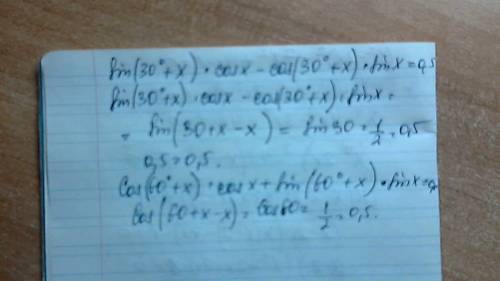 sin(30°+x)·cosx-cos(30°+x)·sinx=0,5
sin(30°+x)·cosx-cos(30°+x)·sinx=
= sin(30+x-x) = sin30 = 1/2 = 0,5
0,5=0,5.
cos(60°+x)·cosx+sin(60°+x)·sinx=0,
cos(60+x-x)=cos60= 1/2 = 0,5.